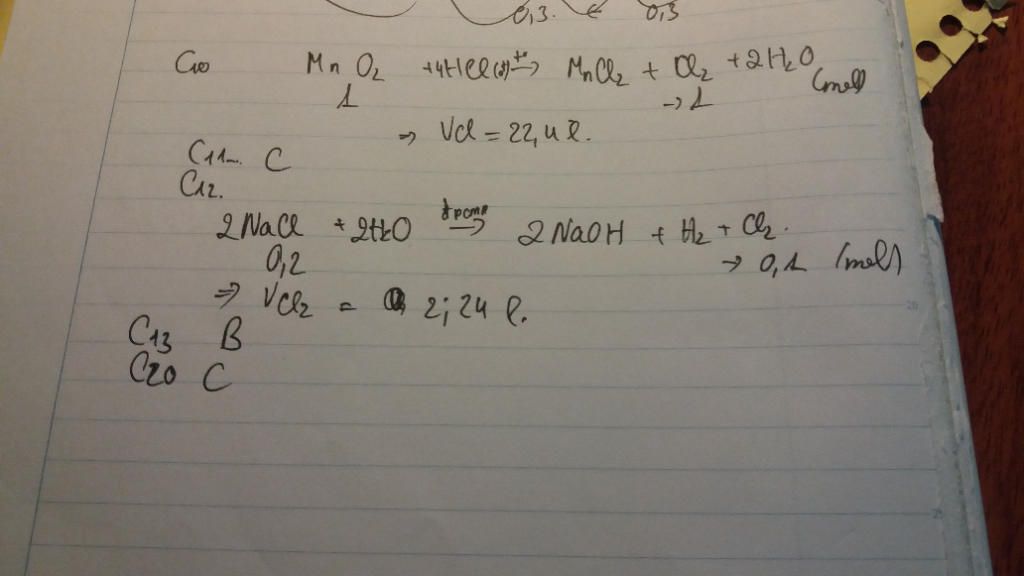 0,3. ← 0,3
C10 MnO2 + 4HCl(đ) t°→ MnCl2 + Cl2 + 2H2O
1 → 1 (mol)
⇒ VCl = 22,4 l.
C11... C
C12.
2NaCl + 2H2O đpcmn→ 2NaOH + H2 + Cl2.
0,2 → 0,1 (mol)
⇒ VCl2 = 2;24 l.
C13 B
C20 C